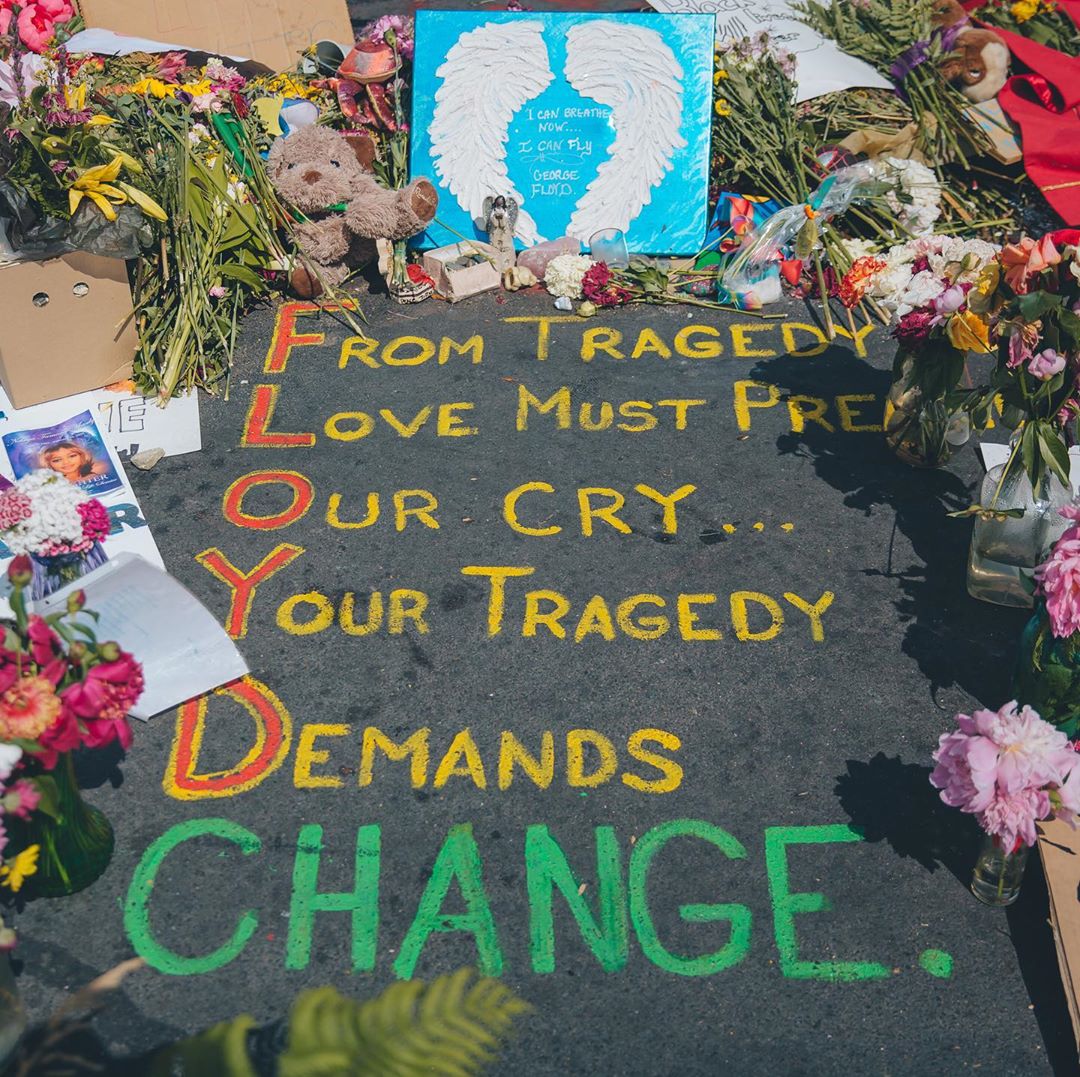 Black
I CAN BREATHE
NOW....
I CAN FLY
GEORGE
FLOYD.
FROM TRAGEDY
LOVE MUST PRE
OUR CRY...
YOUR TRAGEDY
DEMANDS
CHANGE.